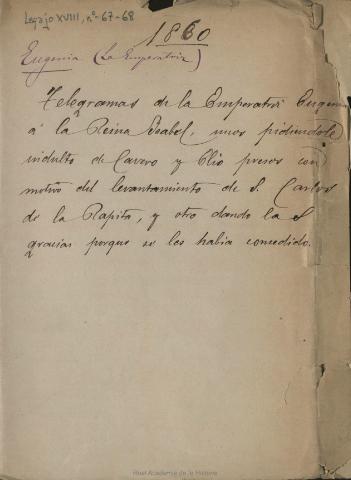 Legajo XVIII, nº 67-68
1860
Eugenia (La Emperatriz)
Telegramas de la Emperatriz Eugenia
á la Reina Isabel, unos pidiendole
indulto de Cavero y Elio presos con
motivo del levantamiento de S. Carlos
de la Rapita, y otro dando las
gracias porque se les habia concedido.
Real Academia de la Historia